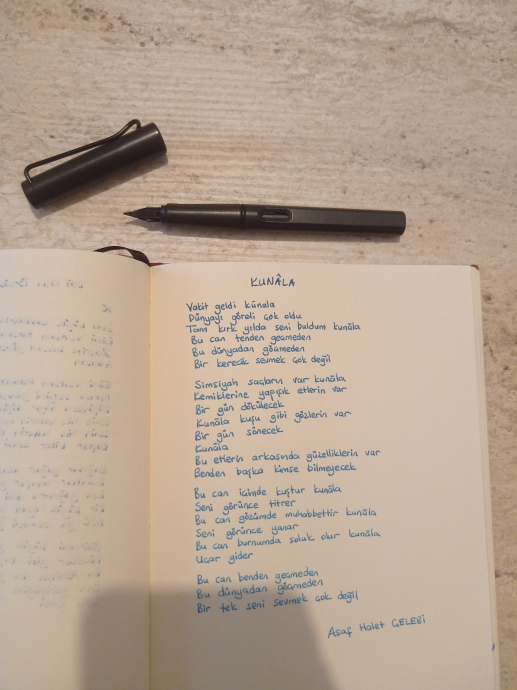 KUNÂLA
Vakit geldi künala
Dünyayı göreli çok oldu
Tam kırk yılda seni buldum kunâla
Bu can tenden geçmeden
Bu dünyadan göçmeden
Bir kerecik sevmek çok değil
Simsiyah saçların var kunâla
Kemiklerine yapışık etlerin var
Bir gün dökülecek
Kunâla kuşu gibi gözlerin var
Bir gün sönecek
Kunâla
Bu etlerin arkasında güzelliklerin var
Benden başka kimse bilmeyecek
Bu can içimde kuştur kunâla
Seni görünce titrer
Bu can gözümde muhabbettir kunâla
Seni görünce yanar
Bu can burnumda soluk olur kunâla
Uçar gider
Bu can benden geçmeden
Bu dünyadan göçmeden
Bir tek seni sevmek çok değil
Asaf Halet ÇELEBİ